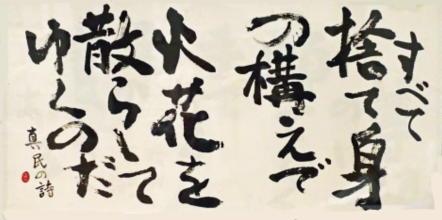 すべて
捨て身
の構えで
火花を
散らして
ゆくのだ
真民の詩